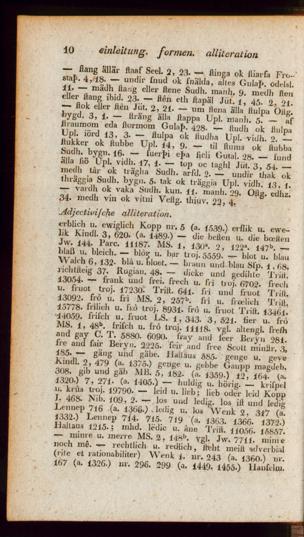 10 einleitung. formen. alliteration
— ſtang ällär ſtaaf Seel. 2, 23. — ſtinga ok ſtiarfa Fro-
ſtaþ. 4, 18. — undir ſnud ok ſnälda, altes Gulaþ. odelsl.
11. — mädh ſtang eller ſtene Sudh. manh. 9. medh ſten
eller ſtang ibid. 23. — ſtên eth ſtapäl Jüt. 1, 45. 2, 21.
— ſtok eller ſtên Jüt. 2, 21. — um ſtena älla ſtulpa Oſtg.
bygd. 3, 1. — ſträng älla ſtappa Upl. manh. 5. — af
ſtraumom eda ſtormom Gulaþ. 428. — ſtudh ok ſtulpa
Upl. iörd 13, 3. — ſtulpa ok ſtudha Upl. vidh. 2. —
ſtukker ok ſtubbe Upl. 14, 9. — til ſtums ok ſtubba
Sudh. bygn. 16. — ſuerþi eþa ſicli Gutal. 28. — ſund
älla ſiö Upl. vidh. 17, 1. — top oc taghl Jüt. 3, 54. —
medh tår ok trägha Sudh. arfd. 2. — undir thak ok
thräggia Sudh. bygn. 5. tak ok träggia Upl. vidh. 13. 1.
— vardh ok vaka Sudh. kun. 11. manh. 29. Oſtg. edhz.
34. medh vin ok vitni Veſtg. thiuv. 22, 4.
Adjectiviſche alliteration.
erblich u. ewiglich Kopp nr. 5 (a. 1539.) erflik u. ewe-
lik Kindl. 3, 620. (a. 1489.) — die beſten u. die boeſten
Jw. 144. Parc. 11187. MS. 1, 130ᵃ. 2, 122ᵃ. 147ᵇ. —
blaß u. bleich. — blôz u. bar troj. 5559. — blot u. blau
Walch 6, 132. blå u. bloet. — braun und blau Sſp. 1, 68.
richtſteig 37. Rugian. 48. — dicke und gedihte Triſt.
13054. — frank und frei. frech u. fri troj. 6702. frech
u. fruot troj. 17230. Triſt. 641. fri und fruot Triſt.
13092. frô u. fri MS. 2, 257ᵇ. fri u. frœlich Triſt.
15778. frilich u. frô troj. 8931. frô u. fruot Triſt. 13461.
14059. friſch u. fruot LS. 1, 343. 3, 521. fier u. frô
MS. 1, 48ᵇ. friſch u. frô troj. 11118. vgl. altengl. freſh
and gay C. T. 5880. 6090. fray and feer Beryn 281.
fre and fair Beryn. 2225. feir and free Scott mindr. 3,
185. — gäng und gäbe. Haltaus 585. genge u. geve
Kindl. 2, 479 (a. 1375.) genge u. gebbe Gaupp magdeb.
308. gib und gäb MB. 5, 182. (a. 1359.) 12, 164. (a.
1320.) 7, 271. (a. 1405.) — huldig u. hörig. — kriſpel
u. krûs troj. 19790. — leid u. lieb; lieb oder leid Kopp
I, 468. Nib. 109, 2. — los und ledig. los iſt und ledig
Lennep 716 (a. 1366.) ledig u. los Wenk 2, 317 (a.
1332.) Lennep 714. 715. 719 (a. 1363. 1366. 1372.)
Haltaus 1215.; mhd. lêdic u. âne Triſt. 11056. 15857.
— minre u. merre MS. 2, 148ᵇ. vgl. Jw. 7711. minre
noch mê. — rechtlich u. redlich, ſteht meiſt adverbial
(rite et rationabiliter) Wenk 1. nr. 243 (a. 1360.) nr.
167 (a. 1326.) nr. 296. 299 (a. 1449. 1455.) Hanſelm.